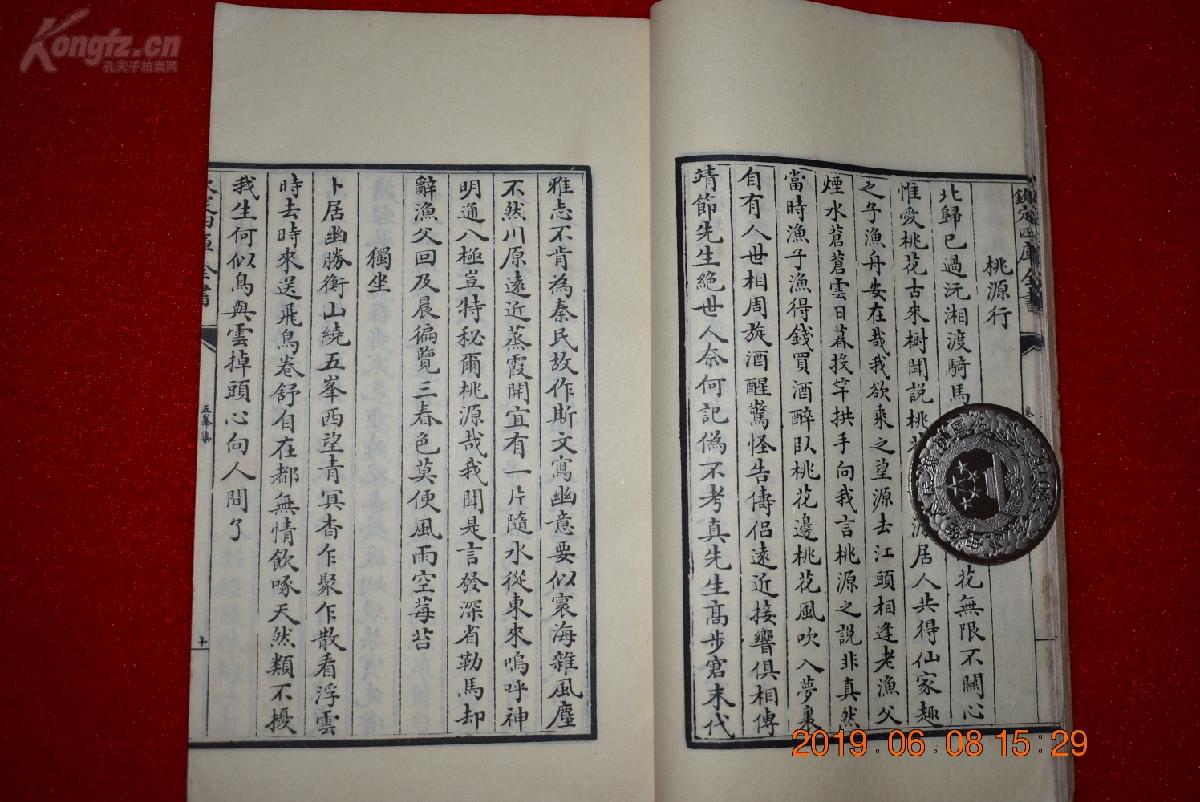 Kongfz.cn
孔夫子拍卖网
欽定四庫全書
桃源行
北歸已過沅湘渡騎馬
花無限不關心
惟愛桃花古來樹聞說桃
源居人共得仙家趣
之子漁舟安在哉我欲乘之望源去江頭相逢老漁父
煙水蒼蒼雲日暮投竿拱手向我言桃源之說非真然
當時漁子漁得錢買酒醉臥桃花邊桃花風吹入夢裏
自有人世相周旋酒醒驚怪告儔侶遠近接響俱相傳
靖節先生絕世人奈何記偽不考真先生高步窘末代
雅志不肯為秦民故作斯文寫幽意要似寰海雜風塵
不然川原遠近蒸霞開宜有一片隨水從東來嗚呼神
明通八極豈特秘爾桃源哉我聞是言發深省勒馬却
辭漁父回及晨徧覽三春色莫便風雨空莓苔
獨坐
卜居幽勝衡山繞五峯西望青冥杳乍聚乍散看浮雲
時去時來送飛鳥卷舒自在都無情飲啄天然類不擾
我生何似鳥與雲掉頭心向人間了
欽定四庫全書
五峯集
十
2019.06.08 15:29